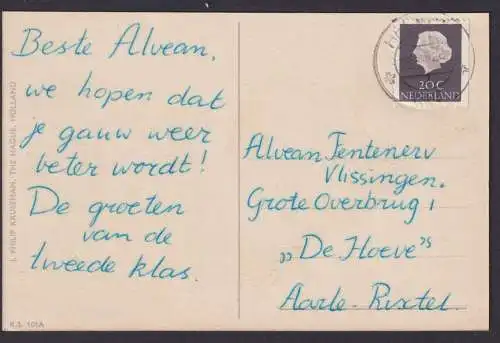 Beste Alvean,
we hopen dat
je gauw weer
beter wordt!
De groeten
van de
tweede klas.
Alvean Tentenerv
Vlissingen.
Grote Overbrug 1
„De Hoeve”
Aarle-Rixtel.
20 C
NEDERLAND
J. PHILIP KRUSEMAN, THE HAGUE, HOLLAND
K.S. 101A